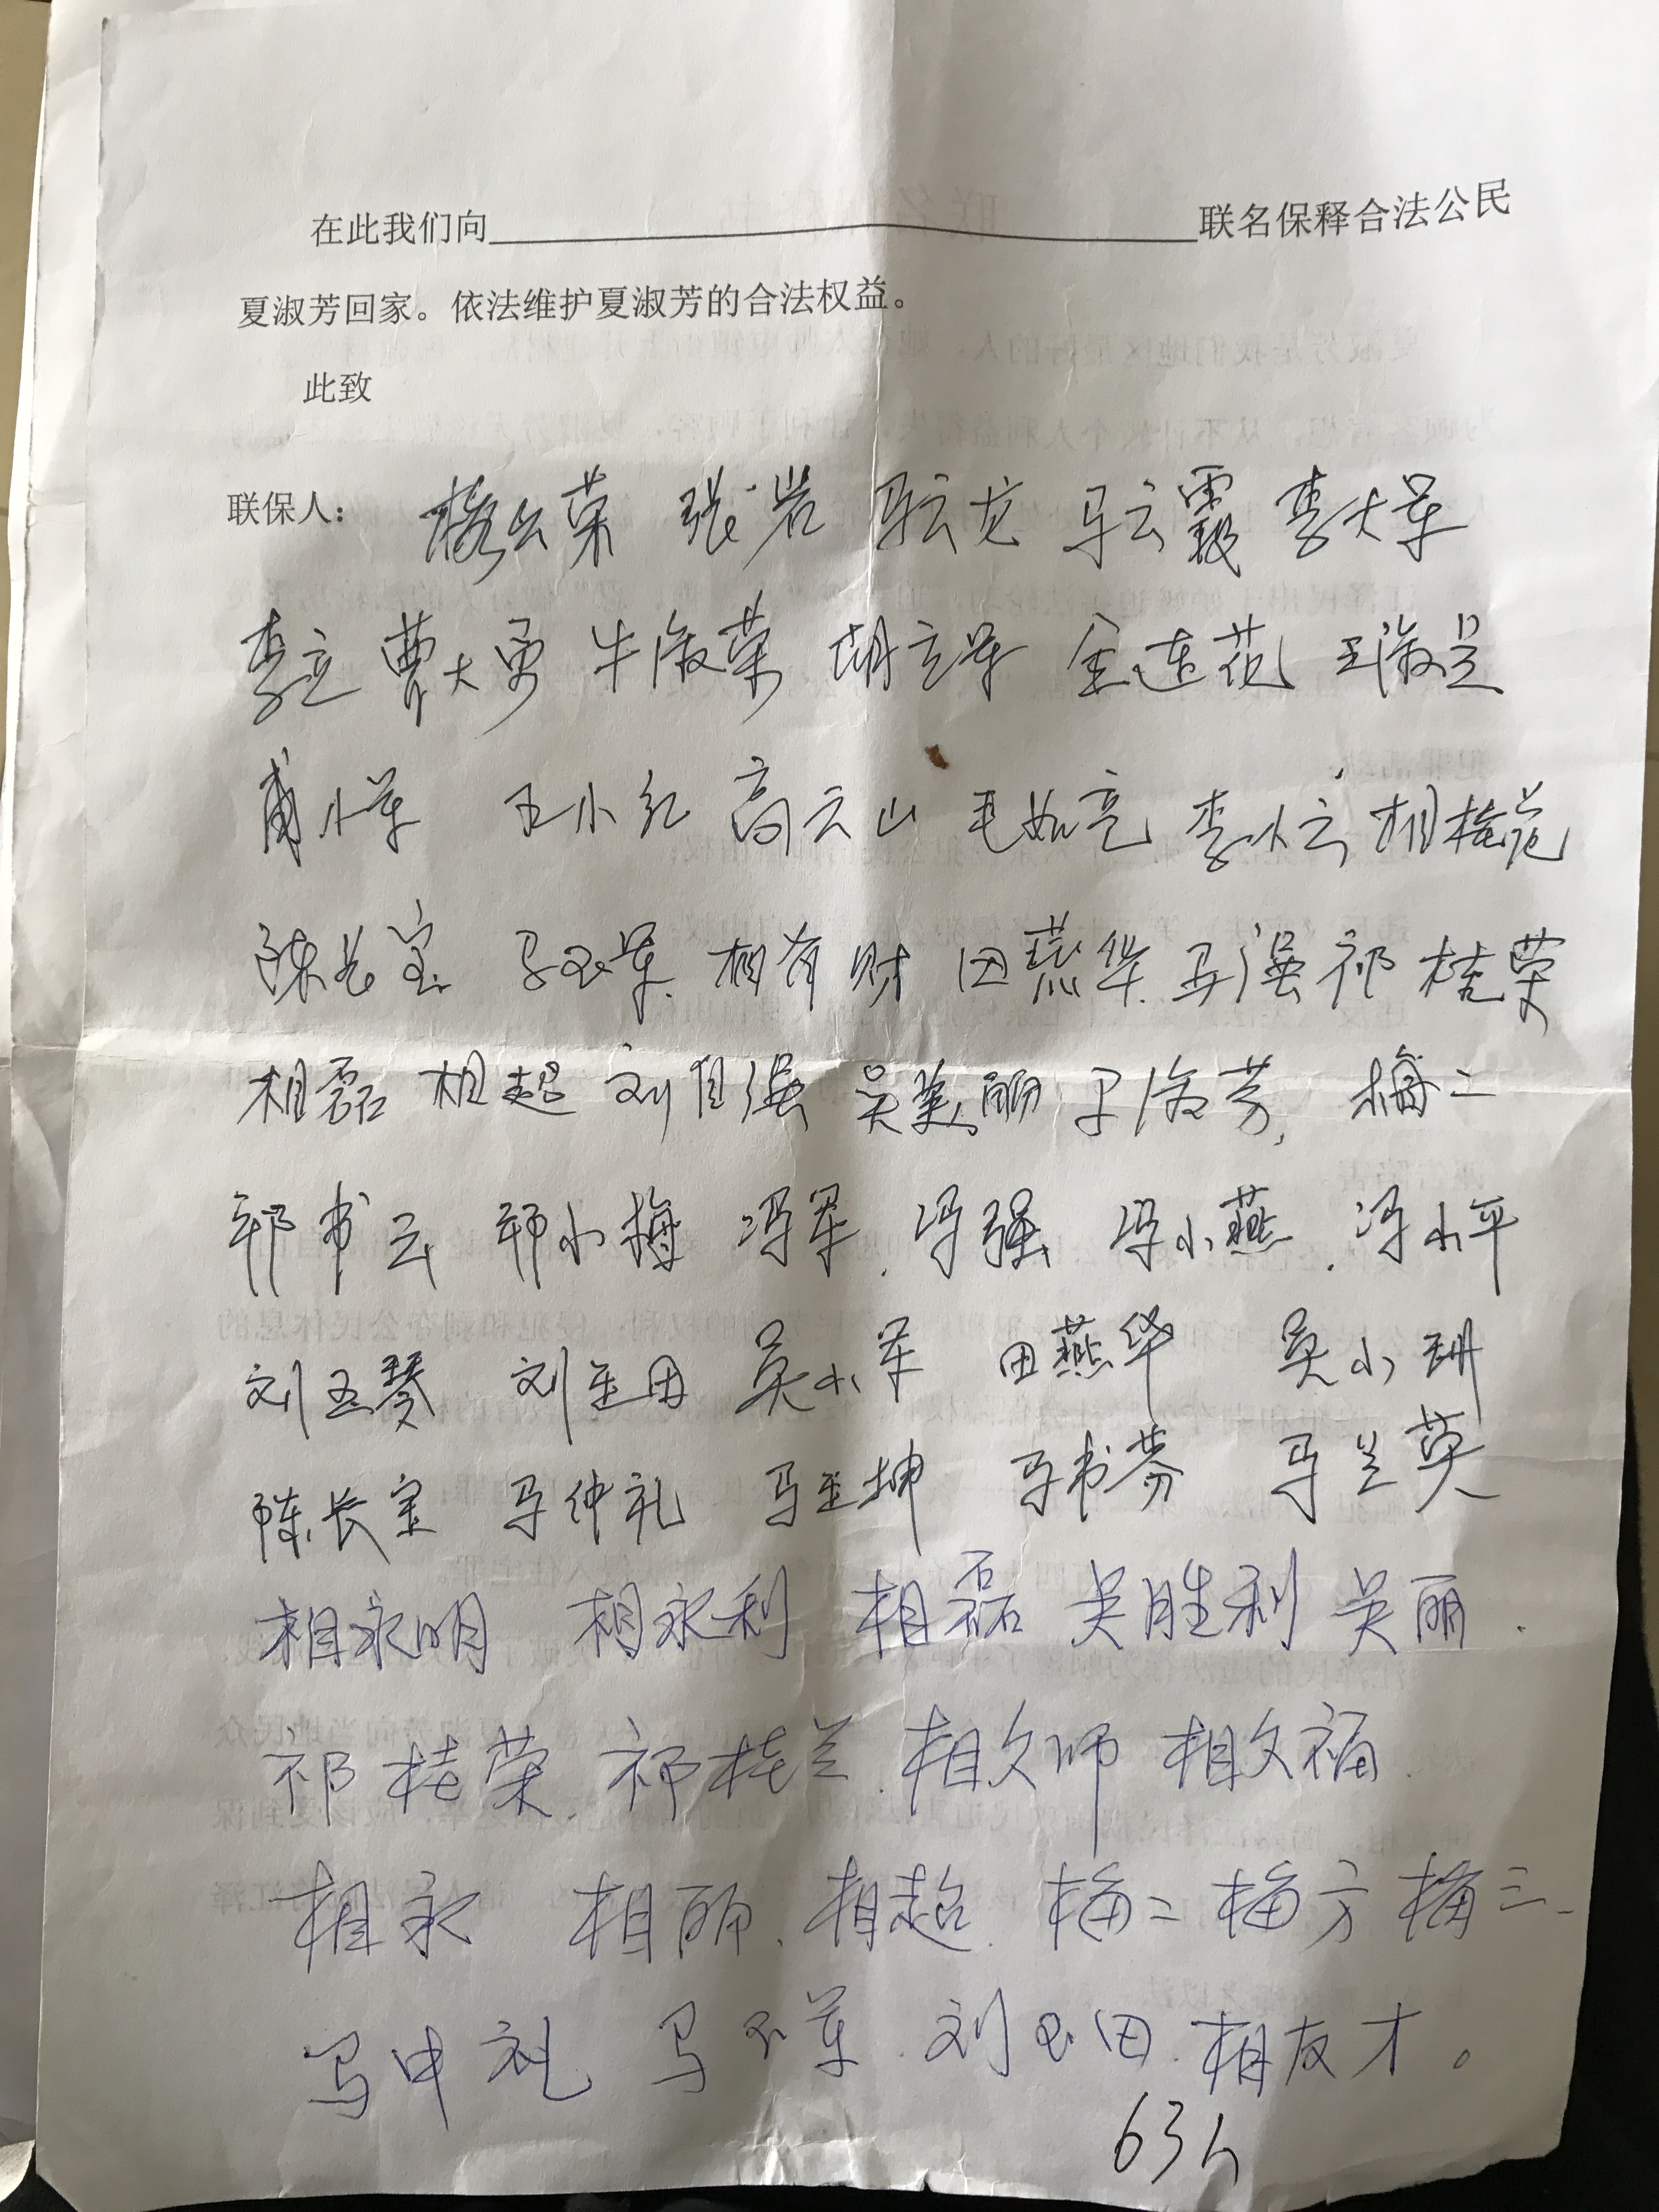 在此我们向 联名保释合法公民
夏淑芳回家。依法维护夏淑芳的合法权益。
此致
联保人： 张岩 马云龙 马云霞 李大军
李立 曹大勇 牛淑荣 胡立军 金连花 王淑兰
小军 王小红 高云山 毛如亮 李小云 相桂花
陈长宝 马玉军 相有财 田燕华 马强 祁桂荣
相磊 相超 刘自强 吴美丽 淑芳 梅二
祁书云 祁小梅 冯军 冯强 冯小燕 冯小平
刘玉琴 刘玉田 吴小军 田燕华 吴小玥
陈长宝 马仲礼 马玉坤 马书芬 马兰英
相永明 相永利 相磊 吴胜利 吴丽
祁桂荣 祁桂兰 相文师 相文福
相永 相丽 相超 梅二 梅方 梅三
马中礼 马玉军 刘玉田 相友才。
63人